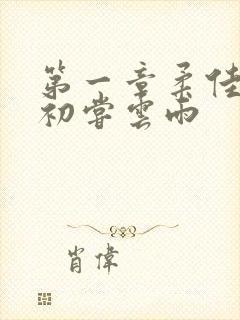 第一章柔佳
初嘗雲雨
肖偉